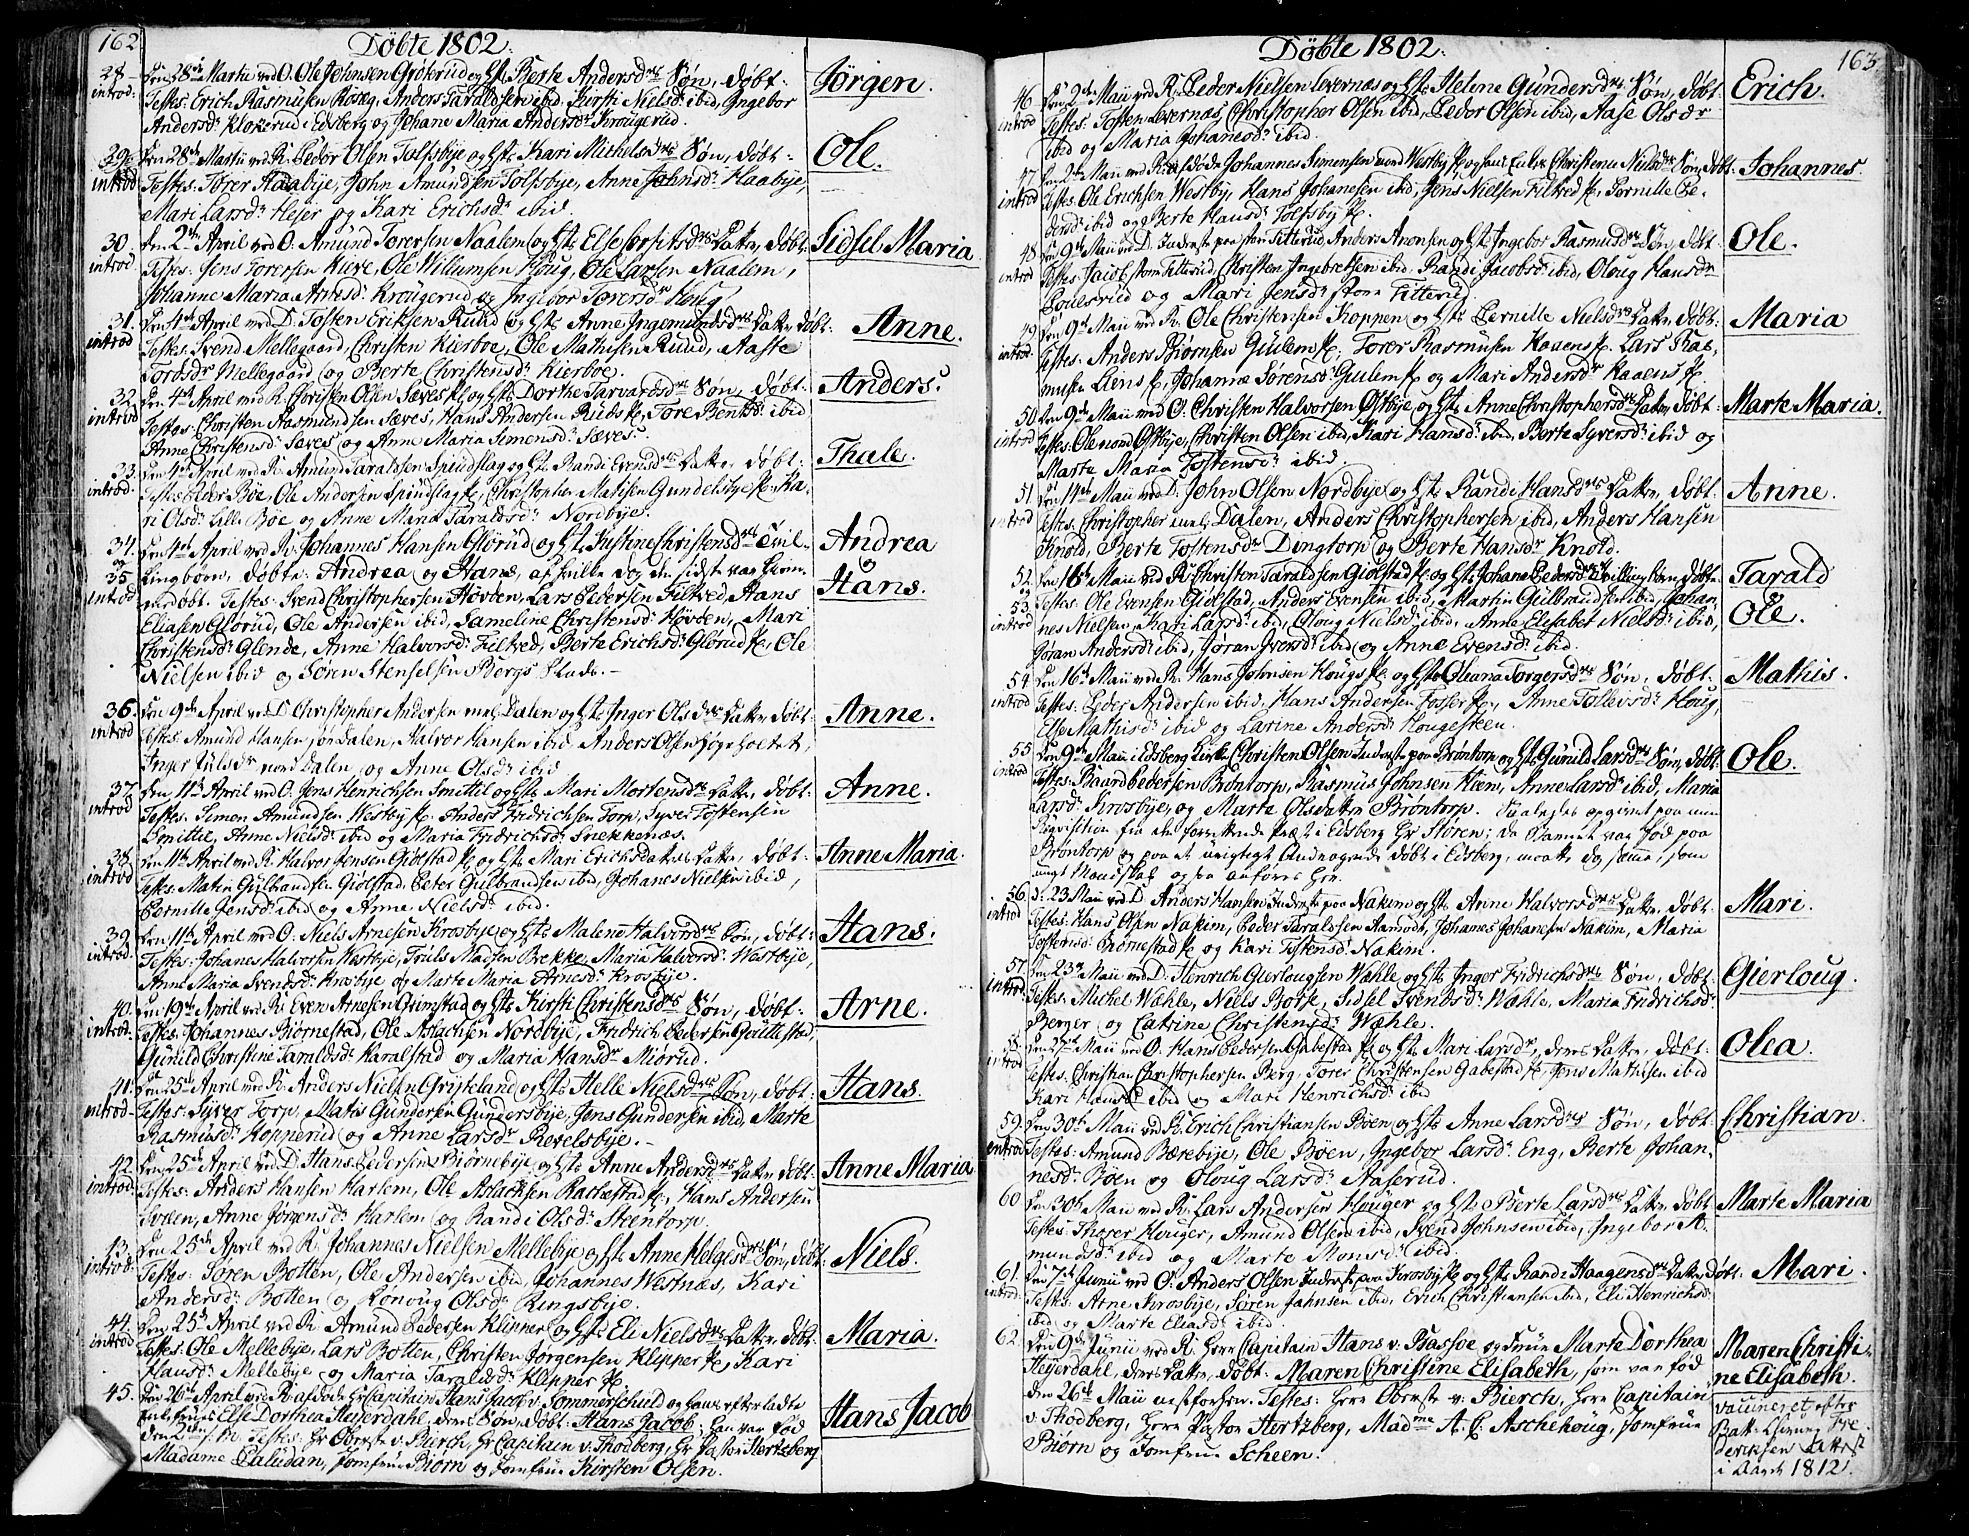 162
Döbte 1802.
28 Den 28 Martii ved O. Ole Johnsen Grökerud og H: Berte Andersd Sön, döbt: Jörgen.
introd: Testes: Erich Rasmusen Aaseg, Anders Taraldsen ibid, Kirsti Nielsd ibid, Ingebor
Andersd: Klokerud i Edsberg og Johane Maria Andersd Krougerud.
29 Den 28 Martii ved K. Peder Olsen Tolfsbye og H: Kari Michelsd Sön, döbt: Ole.
introd Testes: Torer Haabye, John Amundsen Tolfsbye, Anne Johnsd: Haabye,
Mari Larsd: Hejer og Kari Erichsd: ibid.
30. Den 2 April ved O. Amund Torersen Naalem og H: Else Datter döbt: Sidsel Maria
introd Testes: Jens Torersen Kiere, Ole Willumsen Houg, Ole Larsen Naalem,
Johanne Maria Arnesd: Krougerud og Ingebor Torersd: Houg.
31. Den 4 April ved D. Tosten Eriksen Ruud og H: Anne Ingemundsd Datter döbt: Anne.
introd Testes: Svend Mellegaard, Christen Kierboe, Ole Mathisen Ruud, Aaste
Tordsd Mellegaard og Berte Christensd: Kierboe.
32 Den 4 April ved K. Christen Olsen Sæves og H: Dorthe Tarvardsd Sön, döbt. Anders.
introd Testes: Christen Rasmundsen Sæves, Hans Andersen, Tore Bentsd: ibid
Anne Christensd: Sæves og Anne Maria Simensd: Sæves.
33. Den 4 April ved K. Amund Taraldsen Spindslag og H: Randi Evensd Datter, döbt: Thale.
introd. Testes: Peder Böe, Ole Andersen Spindslag, Christopher Matisen Gundelsbye, Ka-
ri Olsd: Lille Böe og Anne Maria Taraldsd: Nordbye.
34. Den 4 April ved K. Johannes Hansen Glörud og H: Justine Christensd Tvil- Andrea
og
35 lingbörn, döbte: Andrea og Hans, af hvilke dog den sidste var hiem- Hans.
introd medöbt. Testes: Svend Christophersen Hövden, Lars Pedersen Filtved, Hans
Eliasen Glörud, Ole Andersen ibid, Sameline Christensd: Hövden, Mari
Christensd: Glende, Anne Halvorsd: Filtved, Berte Erichsd: Glörud, Ole
Nielsen ibid og Sören Stenselsen Bergs Plads.
36. Den 9 April ved D Christopher Andersen mel: Dalen og H: Inger Olsd Datter, döbt: Anne.
introd Testes: Amund Hansen Dalen, Halvor Hansen ibid, Anders Olsen,
Inger Julsd: nord Dalen og Anne Olsd: ibid
37. Den 11 April ved O. Jens Henrichsen Smittel og H: Mari Mortensd Datter, döbt: Anne.
introd Testes: Simen Amundsen Westby, Anders Fridrichsen Torp, Syver Tostensen
Smittel, Anne Nielsd: ibid og Maria Fridrichsd: Snekkenæs.
38. Den 11 April ved K. Halvor Jensen Giölstad og H: Mari Erichsdatter Datter, döbt: Anne Maria.
introd Testes: Matin Gulbrandsen Giölstad, Peter Gulbrandsen ibid, Johanes Nielsen ibid,
Pernille Jensd: ibid og Anne Nielsd: ibid.
39. Den 11 April ved O. Niels Arnesen Krosbye og H: Malene Halvorsd Sön, döbt: Hans.
introd. Testes: Johanes Halvorsen Westbye, Truls Madsen Brekke, Maria Halvorsd: Westbye,
Anne Maria Svendsd: Krosbye og Marte Maria Arnesd: Krosbye.
40. Den 19 April ved K. Even Arnesen Grimstad og H: Kirsti Christensd Sön, döbt: Arne.
introd. Testes: Johannes Biörnestad, Ole Aslachsen Nordbye, Fridrich Pedersen Gouttestad,
Gunild Christine Taraldsd: Karalstad og Maria Hansd: Miörud.
41. Den 25 April ved K. Anders Nielsen Grijteland og H: Helle Nielsd Sön, döbt: Hans.
introd Testes: Syver Torp, Matis Gundersen Gundersbye, Jens Gundersen ibid, Marte
Rasmusd: Hopperud og Anne Larsd: Revelsbye.
42. Den 25 April ved D. Hans Pedersen Biörnebye og H: Anne Andersd Datter, döbt: Anne Maria
introd Testes: Anders Hansen Harlem, Ole Aslachsen Rackestad, Hans Andersen
Svéen, Anne Jörgensd: Harlem og Randi Olsd: Steentorp.
43. Den 25 April ved K. Johannes Nielsen Mellebye og H: Anne Helgesd Sön, döbt: Niels.
introd: Testes: Sören Botten, Ole Andersen ibid, Johannes Westnæs, Kari
Andersd: Botten og Ronoug Olsd: Ringsbye.
44. Den 25 April ved K Amund Pedersen Klipper og H: Eli Nielsd Datter, döbt: Maria.
introd Testes: Ole Mellebye, Lars Botten, Christen Jörgensen Klipper, Kari
Hansd: Mellebye og Maria Taraldsd: Klipper
45. Den 26 April ved K. afdöde Hr Capitain Hans Jacob v. Sommerschild og hans efterladte
Enkefrues Else Dorthea Heyerdahl, deres Sön, döbt: Hans Jacob; han var föd Hans Jacob
den 2 s. M. Testes: Hr Oberste v. Bierch, Hr Capitain v. Thodberg, Hr Pastor Hertzberg
Madame Paludan, Jomfrue Biörn og Jomfrue Kirsten Olsen.
163
Döbte 1802.
46 Den 2 Maii ved K. Peder Nielsen Levernæs og H: Helene Gundersd Sön, döbt: Erich.
introd Testes: Tosten Levernæs, Christopher Olsen ibid, Peder Olsen ibid, Aase Olsdr
ibid og Maria Johanesd: ibid.
47 Den 2 Maii ved K. afdöde Johannes Simensen nord Westby og hans Enke Christense Nielsd Sön, döbt: Johannes.
introd Testes: Ole Erichsen Westby, Hans Johanesen ibid, Jens Nielsen Filtved, Pernille Pe-
dersd: ibid og Berte Hansd: Tolfsby.
48 Den 9 Maii ved D. Inderste paa stom Fitterud, Anders Arensen og H: Ingebor Rasmusd Sön, döbt: Ole.
introd Testes: Jacob stom Fitterud, Christen Ingebretsen ibid, Randi Jacobsd: ibid, Oloug Hansdr
Poulsrud og Mari Jensd: stom Fitterud.
49 Den 9 Maii ved K. Ole Christensen Koppen og H: Pernille Nielsd Datter, döbt: Maria
introd. Testes: Anders Biörnsen Gulem, Torer Rasmusen Haaen, Lars Ras-
musen Lien, Johanne Sörensd: Gulem og Mari Andersd: Haaen
50 Den 9 Maii ved O. Christen Halvorsen Östbye, og H: Anne Christophersd Datter, döbt: Marte Maria.
introd Testes: Ole nord Östbye, Christen Olsen ibid, Kari Hansd: ibid, Berte Syversd: ibid og
Marte Maria Tostensd: ibid.
51. Den 14 Maii ved D. John Olsen Nordbye og H: Randi Hansd Datter, döbt: Anne.
introd Testes: Christopher mel: Dalen, Anders Christophersen ibid, Anders Hansen
Knold, Berte Tostensd: Dingtorp og Berte Hansd: Knold.
52. Den 16 Maii ved K. Christen Taraldsen Giölstad og H: Johane Pedersd Tvillingbörn, döbte Tarald
og
53. Testes: Ole Evensen Giölstad, Anders Evensen ibid, Martin Gulbrandsen ibid, Johan-
introd nes Nielsen, Kari Larsd: ibid, Oloug Nielsd: ibid, Anne Elisabet Nielsd: ibid, Ole.
Jöran Andersd: ibid, Jöran Iversd: ibid og Anne Evensd: ibid.
54 Den 16 Maii ved K. Hans Johnsen Hougs og H: Oleana Torgersd Sön, döbt: Mathis.
introd Testes: Peder Andersen ibid, Hans Andersen Fosser, Anne Tollevsd: Houg,
Else Mathisd: ibid og Larine Andersd: Hougesteen.
55 Den 9 Maii i Edsberg Kirke Christen Olsen Inderste paa Bröntorp og H: Gunild Larsd Sön, döbt Ole.
introd Testes: Baard Pedersen Bröntorp, Rasmus Johnsen Hiem, Anne Larsd: ibid, Maria
Larsd: Krosbye, og Marte Olsdatter Bröntorp. Saaledes opgivet paa min
Requisition fra den forrettende Præst i Edsberg Hr Stören; da Barnet var föd paa
Bröntorp og paa et urigtigt Andragende döbt i Edsberg, maatte dog samme, som
ungt Mandskab ogsaa anföres her.
56. D: 23 Maii ved D. Anders Hansen Inderste paa Nakim og H: Anne Halvorsd Datter, döbt: Mari.
introd Testes: Hans Olsen Nakim, Peder Taraldsen Aamodt, Johanes Johanesen Nakim, Maria
Tostensd: Biörnestad og Kari Tostensd: Nakim.
57 Den 23 Maii ved D. Henrich Gierlougsen Wahle og H: Inger Fridrichsd Sön, döbt: Gierloug.
introd Testes: Michel Wahle, Niels Bork, Sidsel Svendsd: Wahle, Maria Fridrichsd:
Berger og Catrine Christensd: Wahle.
58. Den 27 Maii ved O. Hans Pedersen Gabestad og H: Mari Larsd, deres Datter, döbt: Olea.
introd Testes: Christian Christophersen Berg, Torer Christensen Gabestad, Jens Mathisen ibid
Kari Hansd: ibid og Mari Henrichsd: ibid
59. Den 30 Maii ved K. Erich Christiansen Böen og H: Anne Larsd Sön, döbt: Christian.
introd Testes: Amund Bærebye, Ole Böen, Ingebor Larsd: Eng, Berte Johan-
nesd: Böen og Oloug Larsd: Aaserud.
60 Den 30 Maii ved K. Lars Andersen Houger og H: Berte Larsd Datter, döbt Marte Maria
Testes: Thorer Houger, Amund Olsen ibid, Svend Johnsen ibid, Ingebor A-
mundsd: ibid og Marte Monsd: ibid.
61. Den 7 Junii ved O. Anders Olsen Inderste paa Krosby og H: Randi Haagensd Datter, döbt: Mari.
introd: Testes: Arne Krosbye, Sören Jahnsen ibid, Erich Christiansen ibid, Eli Henrichsd:
ibid og Marte Eliasd: ibid.
62. Den 9 Junii ved K. Herr Capitain Hans v. Bassøe og Frue Marte Dorthea Maren Christi-
Heyerdahl, deres Datter, döbt: Maren Christine Elisabeth, som var föd ne Elisabeth
den 26 Maii næstforhen. Testes: Herr Oberste v: Bierch, Herr Capitain vaccineret efter
v. Thodberg, Herr Pastor Hertzberg, Mad A. C. Aschehoug, Jomfrue
Biörn og Jomfrue Scheen.
deriksen Attest
i 1812.